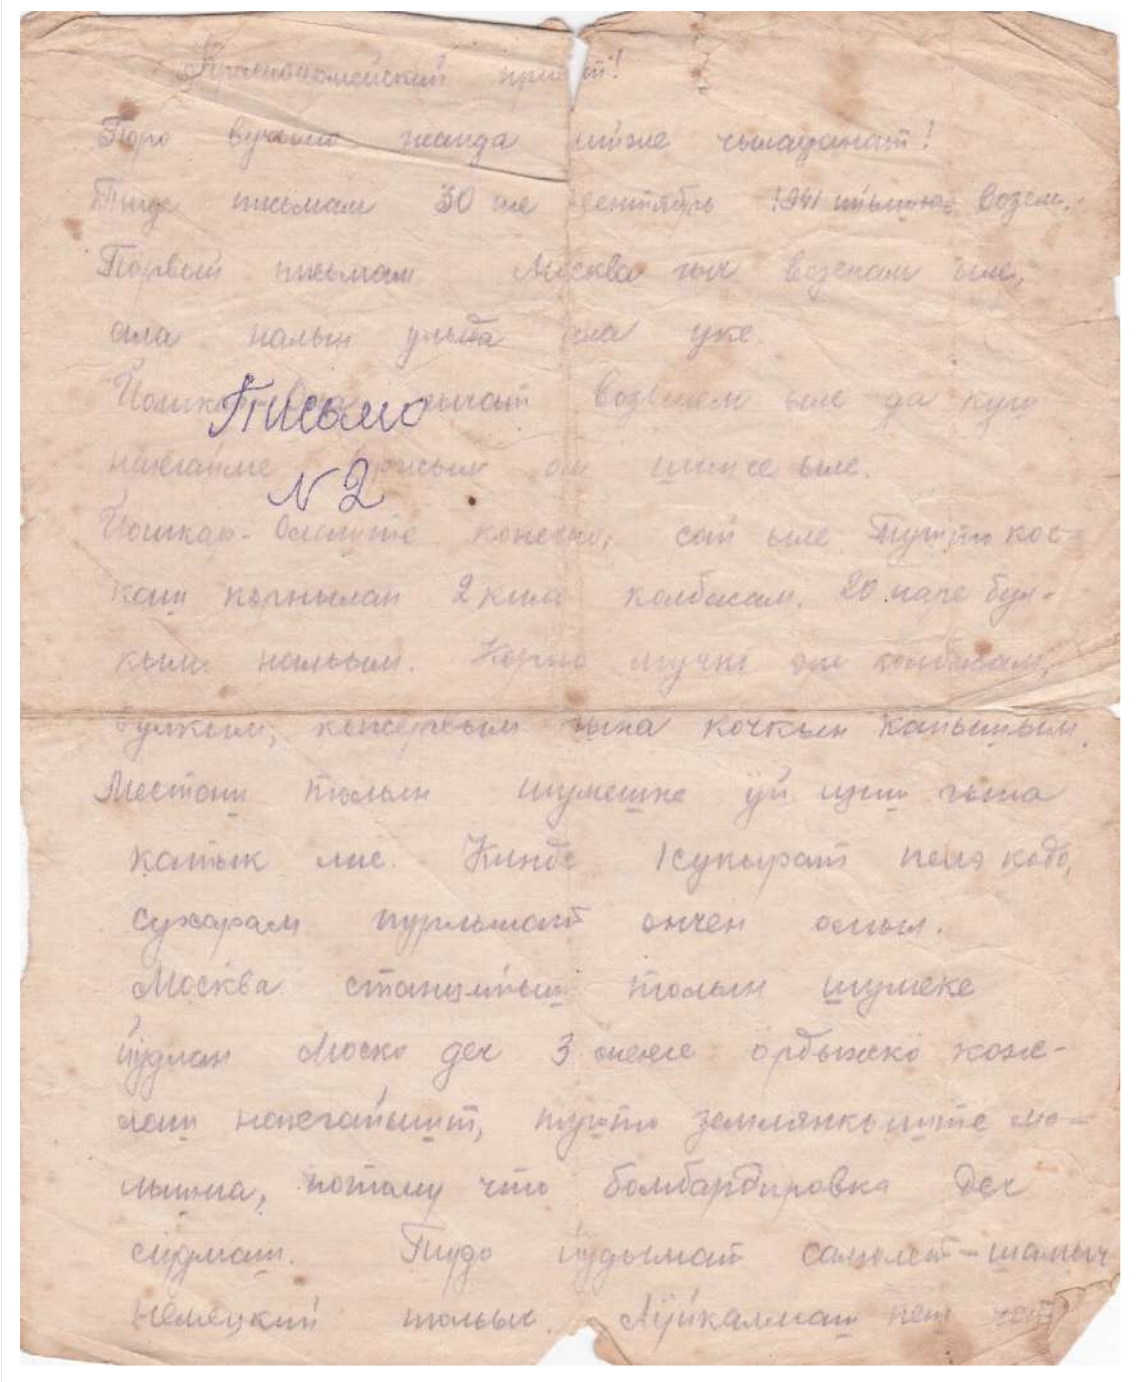 Красноармейский привет!
Пюро вучымо жапда лийже чыладанат!
Тиде письмам 30 ше сентябрь 1941 ийыште возем.
Первый письмам Москва гыч возенам ыле,
ала налын улыда ала уке.
Йошкар-Ола гычат возышем ыле да куш
наҥгайме корным ом шинче ыле.
Письмо
N 2
Йошкар-Олаште конечно, сай ыле. Тушто кос-
каш корнылан 2 кило колбасам, 20 наре бул-
кым нальым. Корно мучко эре колбасам,
булкым, консервым гына кочкын каньышым.
Месташ толын шумешке ӱй изиш гына
катык лие. Кинде 1 сукырат пеле кодо,
сухарам пурлмат ончен омыл.
Москва станцийыш толын шумеке
йӱдлан Москва деч 3 меҥге ӧрдыжкӧ кож-
лаш наҥгайышт, тушто землянкыште ма-
лышна, потому что бомбардировка деч
лӱдмаш. Тудо йӱдымат самолёт-шамыч
немецкий толыч. Лӱйкалмаш пеш